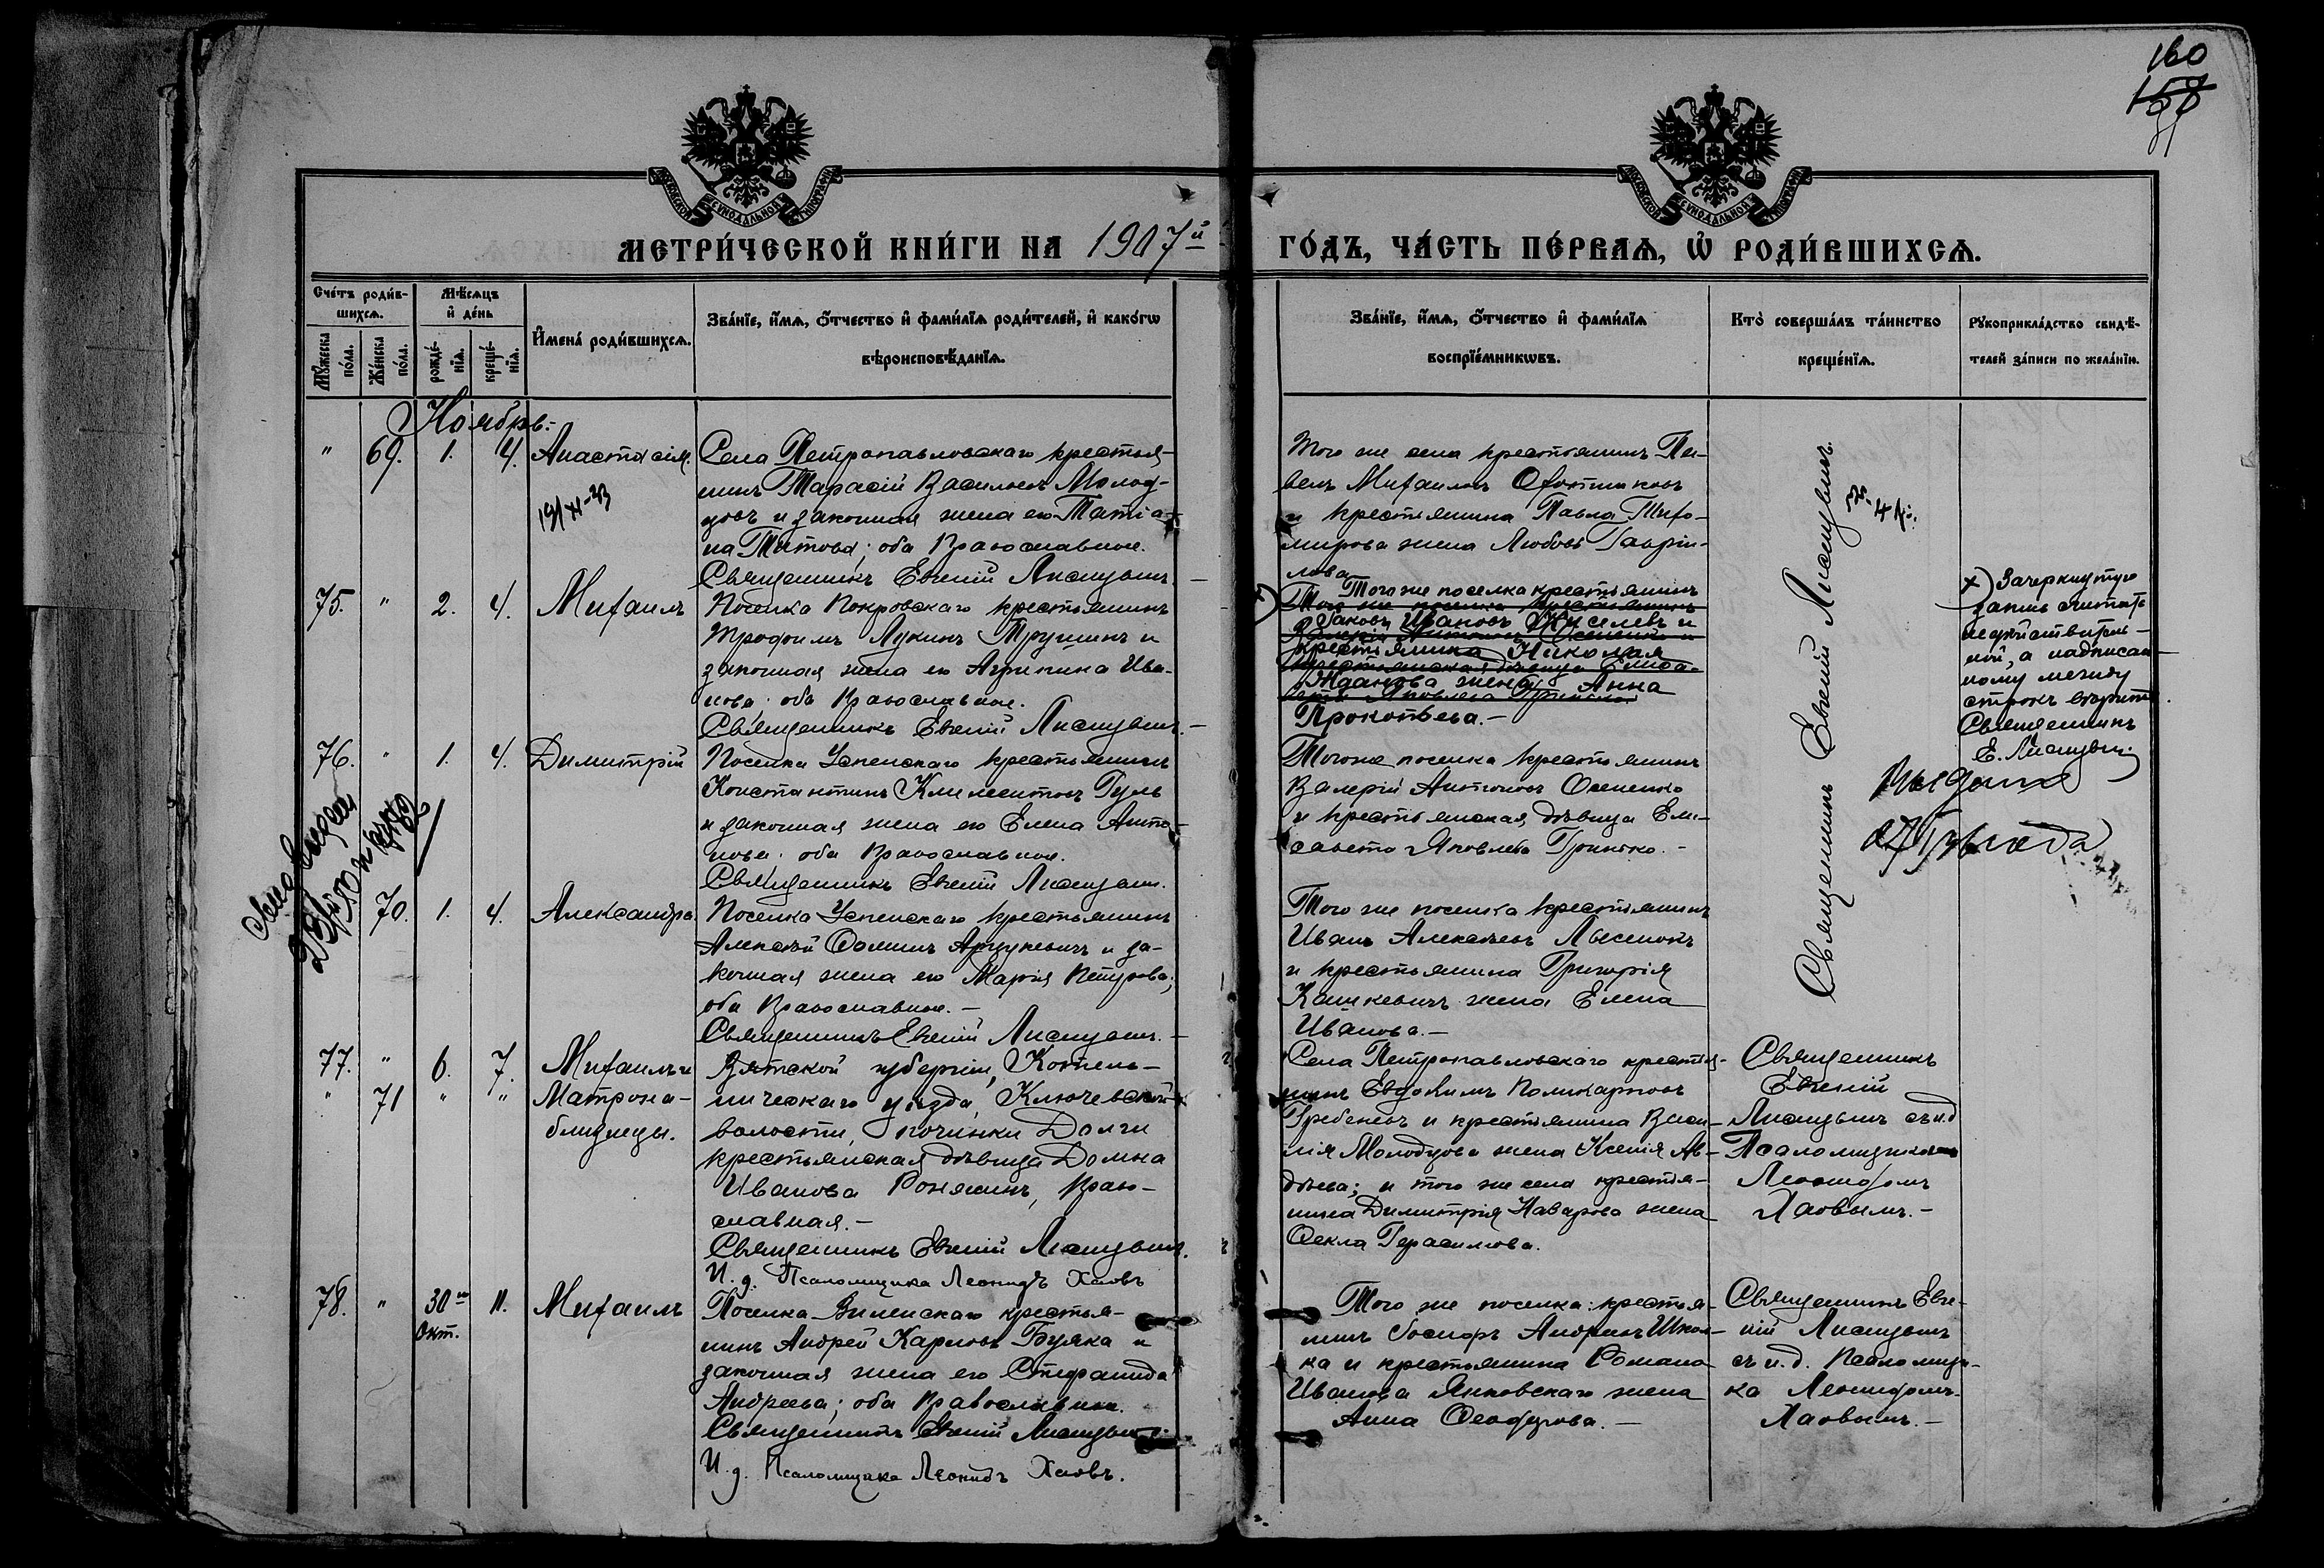 160
МЕТРИ́ЧЕСКОЙ КНИ́ГИ НА 1907й ГО́ДЪ, ЧА́СТЬ ПЕ́РВАѦ, Ѡ҆ РОДИ́ВШИХСѦ.
Сче́тъ роди́в-
шихсѧ.
Мꙋ́жеска по́ла.
Же́нска по́ла.
Мѣ́сѧцъ и҆ де́нь
рожде́-нїѧ.
креще́-нїѧ.
И҆мена̀ роди́вшихсѧ.
Зва́нїе, и҆́мѧ, ѻ҆́тчество и҆ фами́лїѧ роди́телей, и҆ како́гѡ
вѣроисповѣ́данїѧ.
Зва́нїе, и҆́мѧ, ѻ҆́тчество и҆ фами́лїѧ
воспрїе́мникѡвъ.
Кто̀ соверша́лъ та́инство
креще́нїѧ.
Рꙋкоприкла́дство свидѣ́-
телей за́писи по жела́нїю.
Ноябрь.-
" 69. 1. 4. Анастасія.
Села Петропавловскаго крестья-
нинъ Тарасій Васильевъ Молод-
цовъ и законная жена его Татіа-
на Титова; оба Православные.
Священникъ Евгеній Лисицынъ.
Того же села крестьянинъ Па-
велъ Михаиловъ
и крестьянина Павла Тихо-
мирова жена Любовь Гаврiи-
лова
75. " 2. 4. Михаилъ
Поселка Покровскаго крестьянинъ
Трофимъ Лукинъ Трушинъ и
законная жена его Агрипина Ива-
нова; оба Православные.
Священникъ Евгеній Лисицынъ.-
Того же поселка крестьянинъ
Того же поселка крестьянинъ
Яковъ Ивановъ Киселевъ и
Валерій Антоновъ Осипенко и
крестьянина Николая
крестьянская дѣвица Елиса-
Жданова жена Анна
вета Яковлева Гринько
Прокопьева.-
х) Зачеркнутую
запись считать
недѣйствитель-
ной, а надписан-
ному между
строкъ вѣрить
Священникъ
Е. Лисицынъ
76. " 1. 4. Димитрій
Поселка Успенскаго крестьянинъ
Константинъ Климентовъ Гуль
и законная жена его Елена Анто-
нова; оба Православные.
Священникъ Евгеній Лисицынъ.
Того же поселка крестьянинъ
Валерій Антоновъ Осипенко
и крестьянская дѣвица Ели-
савета Яковлева Гринько.-
" 70. 1. 4. Александра
Поселка Успенскаго крестьянинъ
Алексѣй Ѳоминъ Арцукевичъ и за-
конная жена его Марія Петрова;
оба Православные.-
Священникъ Евгеній Лисицынъ.-
Того же поселка крестьянинъ
Иванъ Алексѣевъ Лысенокъ
и крестьянина Григорія
Кашкевичъ жена Елена
Иванова.-
Священникъ Евгеній Лисицынъ.
77. " 6. 7. Михаилъ и
" 71 " " Матрона-
близнецы.
Вятской губерніи, Котель-
ническаго уѣзда, Ключевской
волости, починки Долги
крестьянская дѣвица Домна
Иванова Ронякинъ, Право-
славная.-
Священникъ Евгеній Лисицынъ.
И. д. Псаломщика Леонидъ Хаовъ
Села Петропавловскаго крестья-
нинъ Евдокимъ Поликарповъ
Гребеневъ и крестьянина Васи-
лія Молодцова жена Ксенія Ав-
дѣева; и того же села крестья-
нина Димитрія Назарова жена
Ѳекла Герасимова.
Священникъ
Евгеній
Лисицынъ съ и.д
Псаломщикомъ
Леонидомъ
Хаовымъ.-
78. " 30го Окт. 11. Михаилъ
Поселка Виленскаго крестья-
нинъ Андрей Карповъ Буяка и
законная жена его Стефанида
Андреева; оба Православные.
Священникъ Евгеній Лисицынъ.
И. д. Псаломщика Леонидъ Хаовъ.
Того же поселка: крестья-
нинъ Іосифъ Андреевъ Шкон-
ка и крестьянина Романа
Иванова Янковскаго жена
Анна Ѳеодорова.-
Священникъ Евге-
ній Лисицынъ
съ и.д. Псаломщи-
ка Леонидомъ
Хаовымъ.-